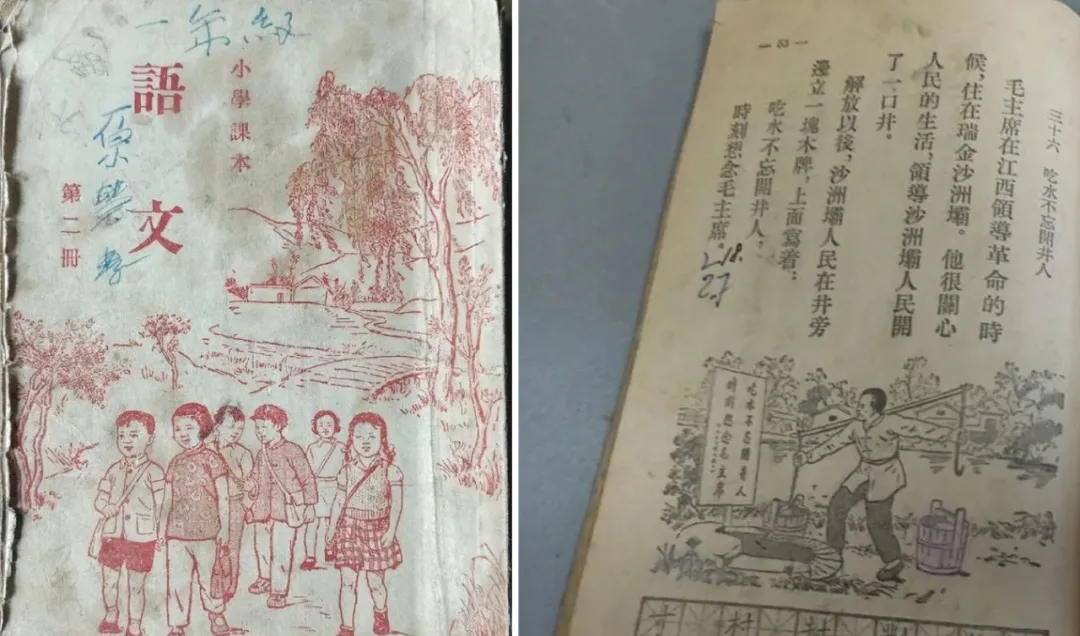 一年级
小學課本
語文
第二冊
— 53 —
三十六 吃水不忘開井人
毛主席在江西領導革命的時
候,住在瑞金沙洲壩。他很關心
人民的生活,領導沙洲壩人民開
了一口井。
解放以後,沙洲壩人民在井旁
邊立一塊木牌,上面寫着:
吃水不忘開井人,
時刻想念毛主席。
吃水不忘開井人
時刻想念毛主席